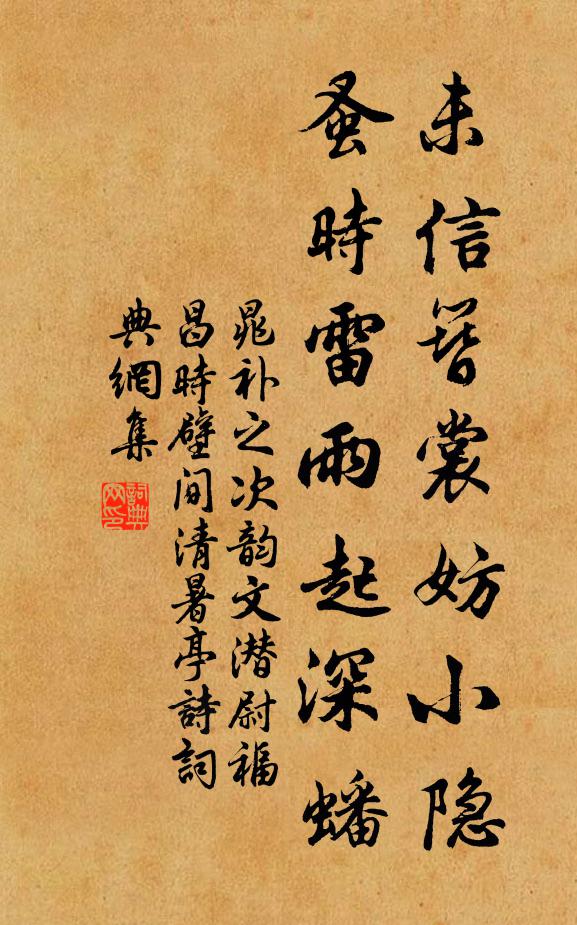 未信簪裳妨小隐
蚤時雷雨起深蟠
晁补之次韵文潜尉福
昌時壁间清暑亭詩詞
典網集
詞典
网印